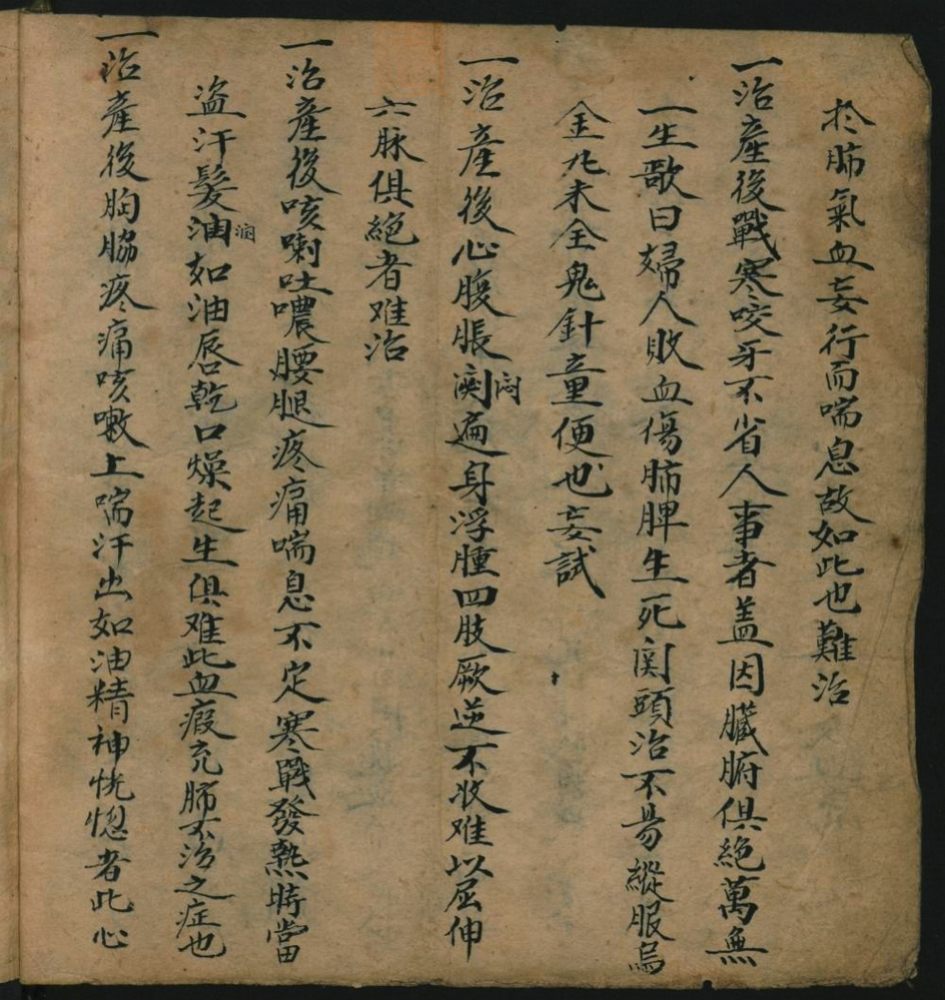 於肺氣血妄行而喘息故如此也難治
一治產後戰寒咬牙不省人事者盖因臟腑俱絕萬無
一生歌曰婦人敗血傷肺脾生死関頭治不易縱服烏
金九未全鬼針童便也妄試
一治產後心腹脹悶遍身浮腫四肢厥逆不收难以屈伸
六脉俱絕者难治
一治產後咳喇吐噥腰腿疼痛喘息不定寒戰發熱時當
盗汗髮油潤如油唇乾口燥起生俱难此血瘕充肺不治之症也
一治產後胸脇疼痛咳嗽上喘汗出如油精神恍惚者此心